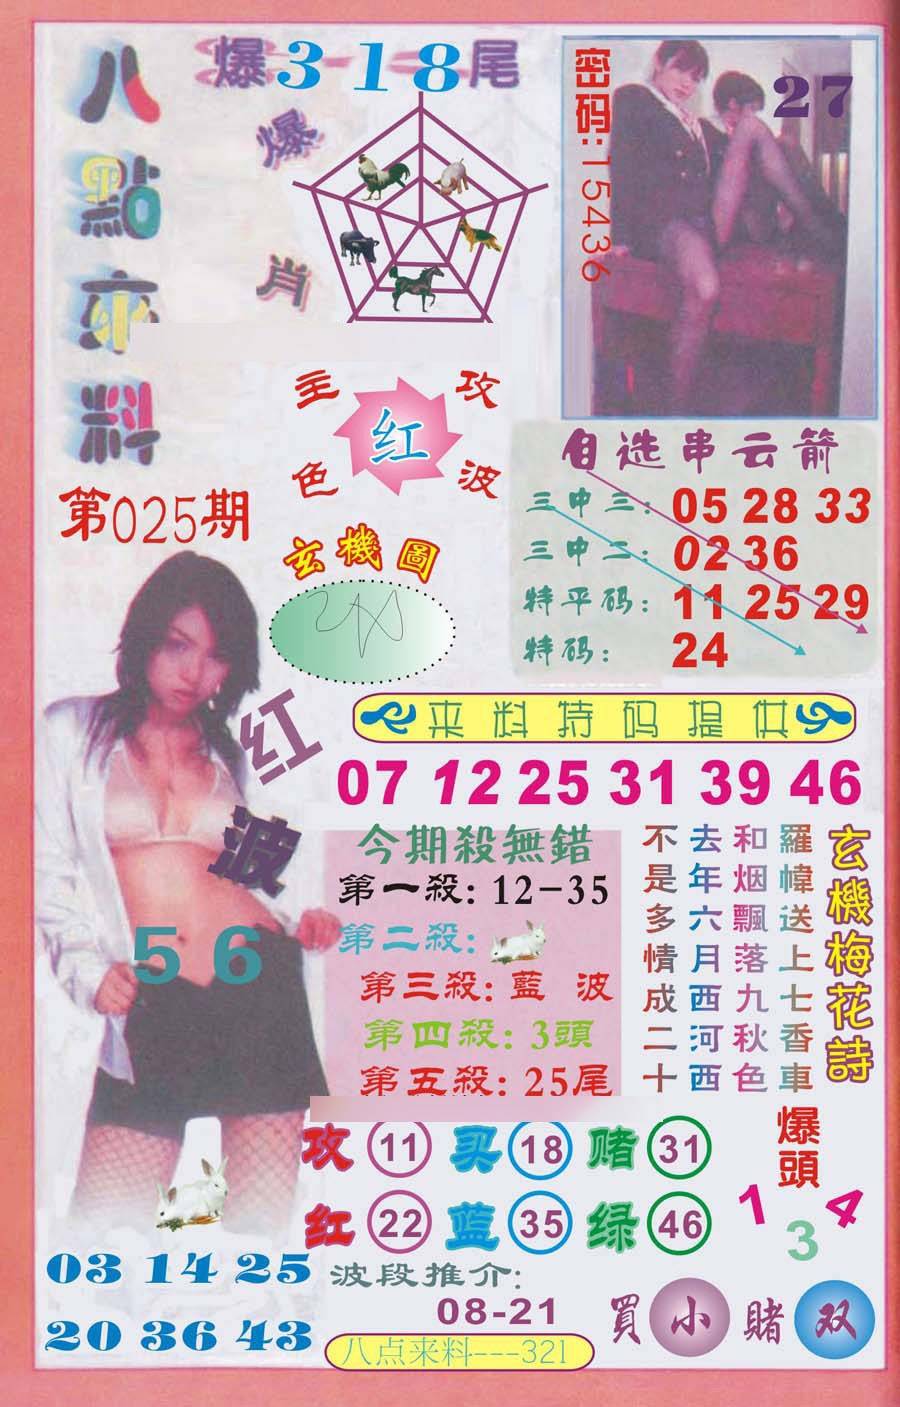 八點來料
爆318尾
爆肖
密码:15436
27
主攻
红
色波
第025期
玄機圖
自选串云箭
三中三: 05 28 33
三中二: 02 36
特平码: 11 25 29
特码: 24
来料特码提供
07 12 25 31 39 46
红波
56
今期殺無錯
第一殺: 12-35
第二殺:
第三殺: 藍波
第四殺: 3頭
第五殺: 25尾
玄機梅花詩
羅幃送上七香車
和烟飄落九秋色
去年六月西河西
不是多情成二十
攻 11 买 18 赌 31
红 22 蓝 35 绿 46
爆頭
1 3 4
03 14 25
20 36 43
波段推介:
08-21
買小賭双
八点来料---321